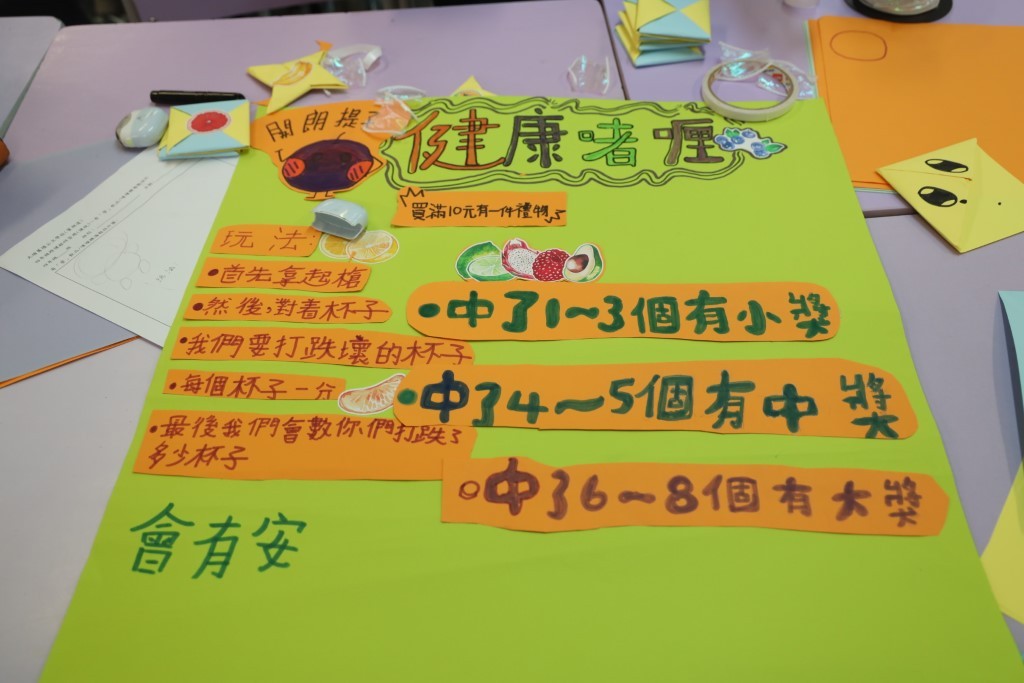 開朗提子
健康啫喱
買滿10元有一件禮物
玩法:
•首先拿起槍
•然後,對着杯子
•我們要打跌壞的杯子
•每個杯子一分
•最後我們會數你們打跌了
多少杯子
•中了1~3個有小獎
•中了4~5個有中獎
中了6~8個有大獎
會有安